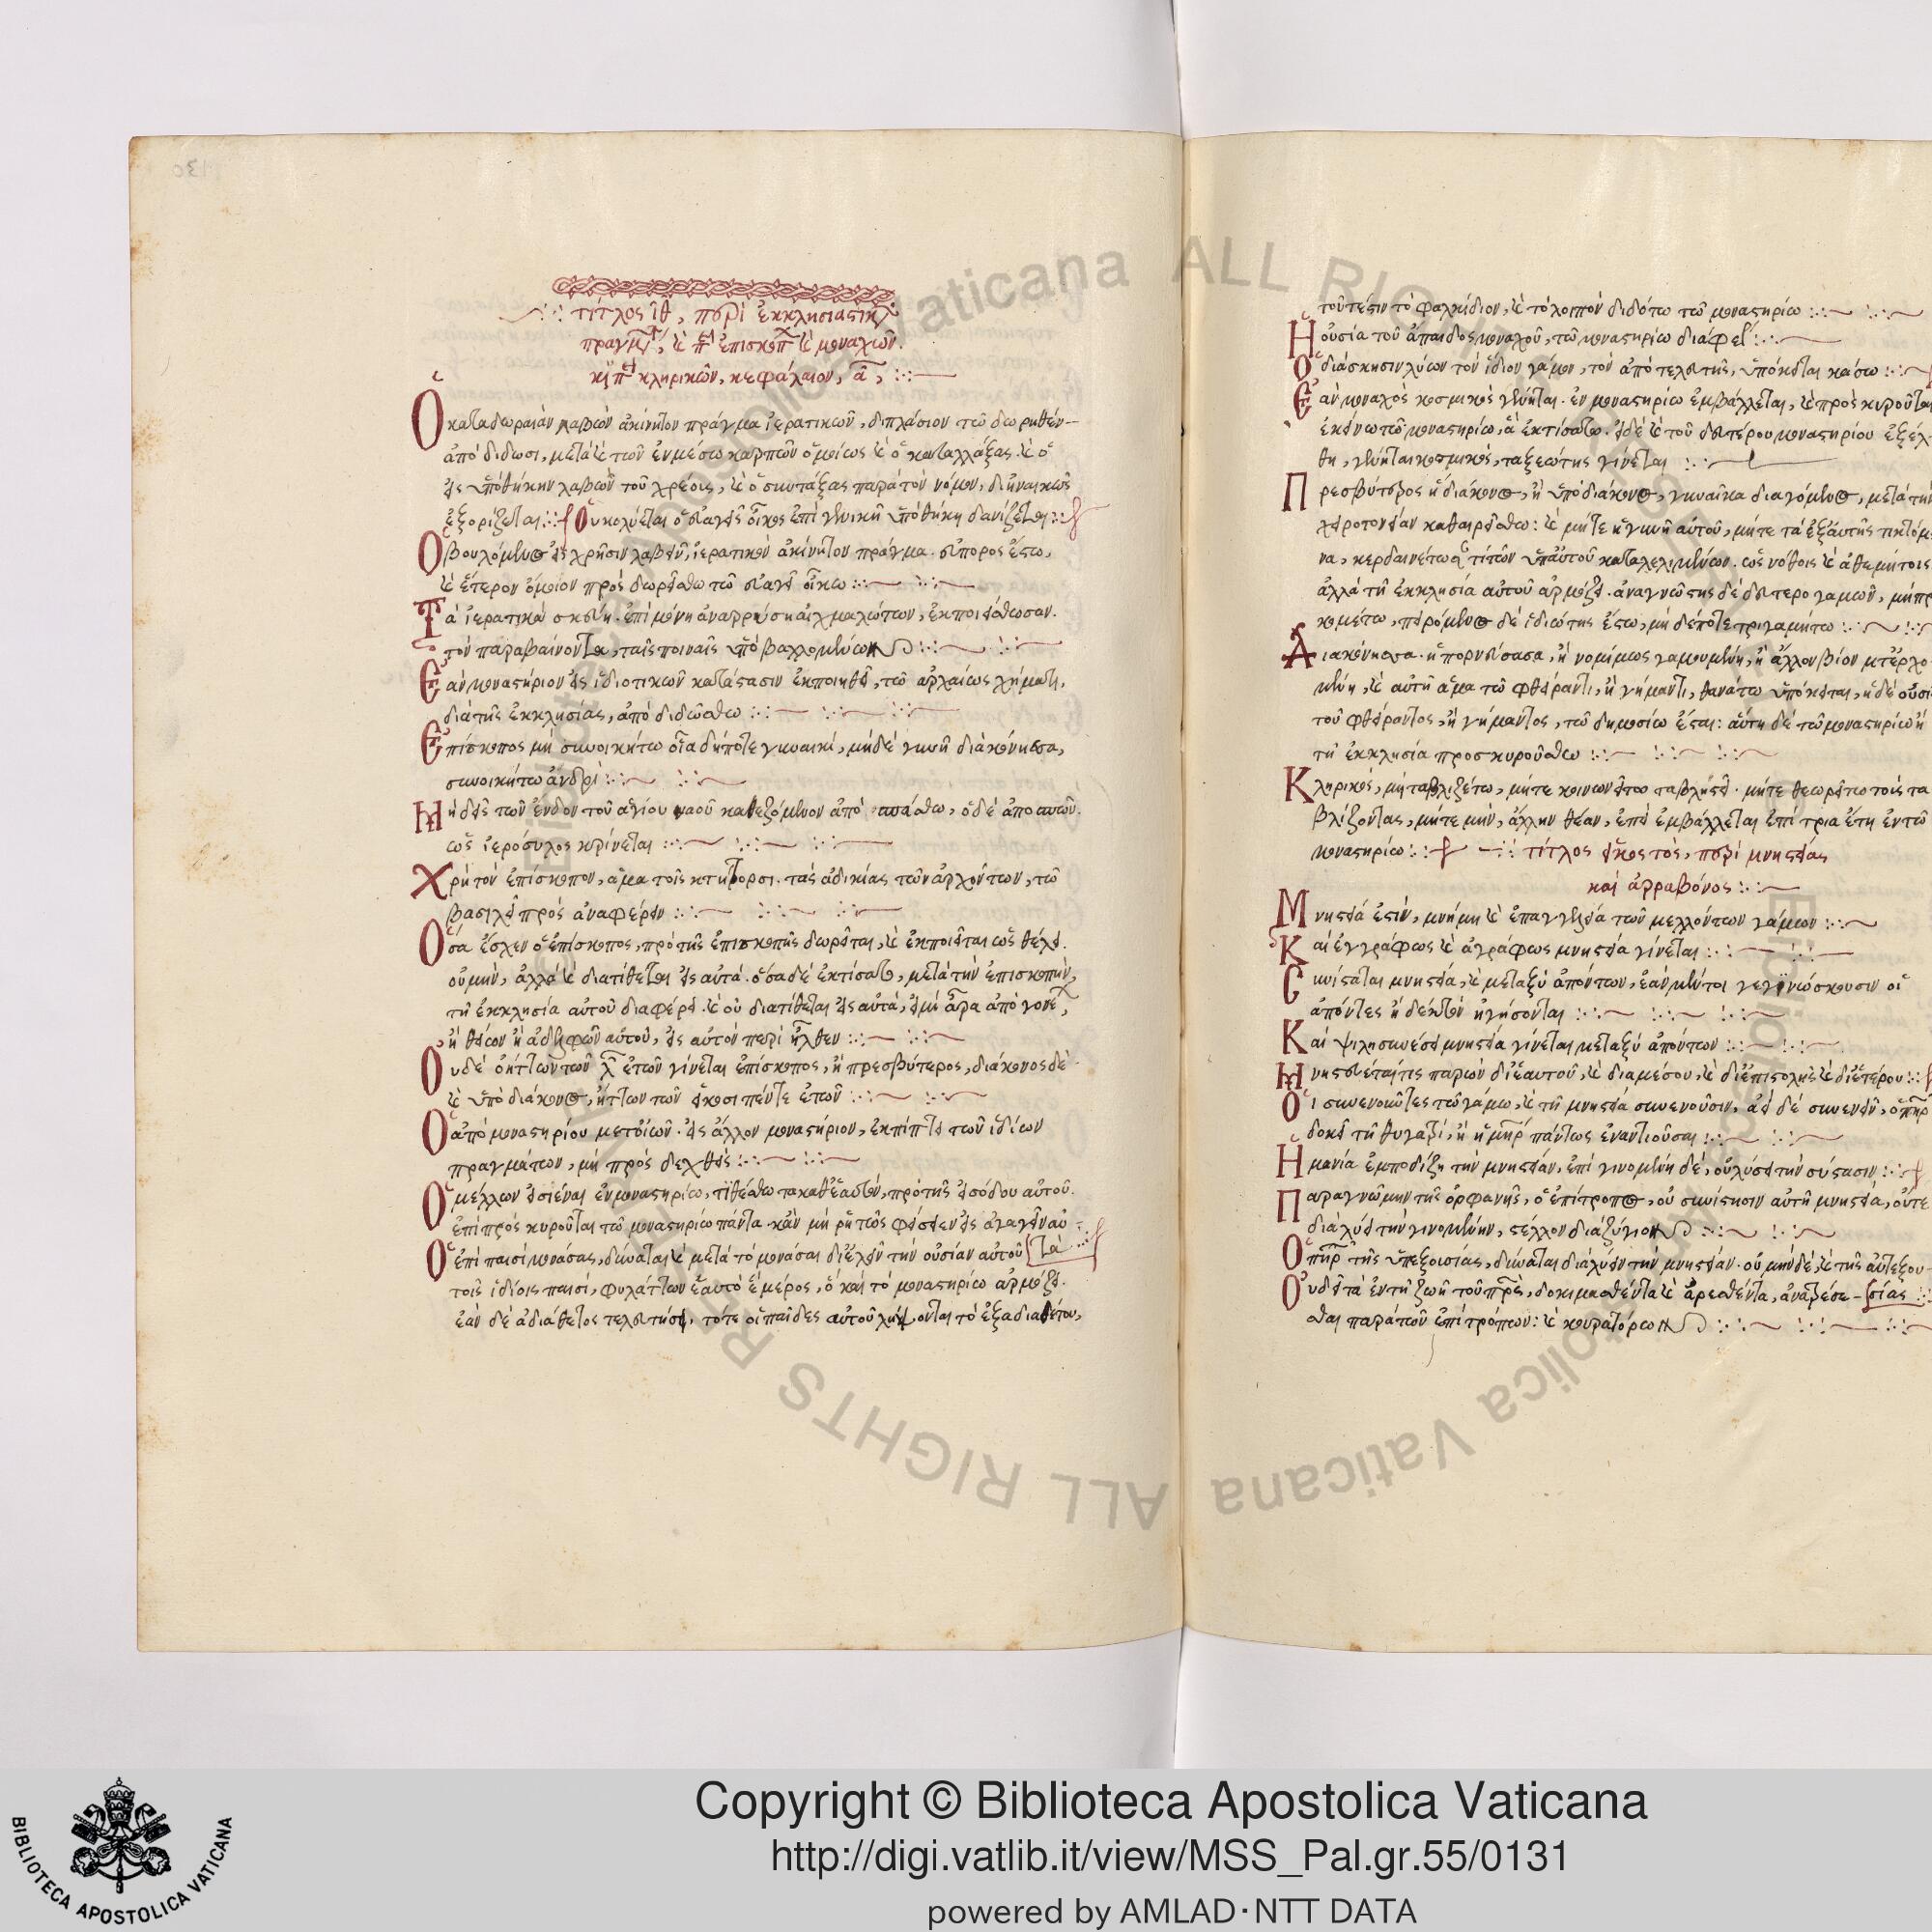 τίτλος ιθ, περὶ ἐκκλησιαστικῶν
πραγμάτ, καὶ π ἐπισκόπ καὶ μοναχῶν.
κὴ π κληρικῶν, κεφάλαιον, α,
Ὁ κατὰ δωραιὰν λαβὼν ἀκίνητον πράγμα ἱερατικῶν, διπλάσιον τῶ δωρηθέν-
ἀποδίδωσι, μετὰ καὶ τῶν ἐν μέσω καρπῶν ὁμοίως καὶ ὁ καταλλάξας. καὶ ὁ
εἰς ὑποθήκην λαβὼν τοῦ χρέοις, καὶ ὁ συντάξας παρὰ τὸν νόμον, διηναικῶς
ἐξορίζεται Οὐ κολύεται ὁ εὐαγεῖς οἶκος ἐπὶ γενικῆ ὑποθήκη δανίζεται
Ὁ βουλόμενος εἰς χρῆσιν λαβεῖν, ἱερατικὸν ἀκίνητον πράγμα. εὔπορος ἔστω,
καὶ ἕτερον ὅμοιον προσδωρείσθω τῶ εὐαγεῖ οἴκω
Τὰ ἱερατικὰ σκεύη. ἐπὶ μόνη ἀναρρύση αἰχμαλώτων, ἐκποιείσθωσαν.
τὸν παραβαίνοντα, ταῖς ποιναῖς ὑποβαλλομένων
Ἐὰν μοναστήριον εἰς ἰδιοτικῶν κατάστασιν ἐκποιηθεῖ, τῶ ἀρχαίως χήματι,
διὰ τῆς ἐκκλησίας, ἀποδιδῶσθω
Ἐπίσκοπος μὴ συνοικήτω οἵα δήποτε γυναικί, μηδὲ γυνὴ διακόνησσα,
συνοικήτω ἀνδρὶ
Μηδεῖς τῶν ἔνδον τοῦ ἁγίου ναοῦ καθεζόμενον ἀποσπάσθω, ὁ δὲ ἀποσπῶν.
ὡς ἱερόσυλος κρίνεται
Χρὴ τὸν ἐπίσκοπον, ἅμα τοῖς κτήτορσι. τὰς ἀδικίας τῶν ἀρχόντων, τῶ
βασιλεῖ προσαναφέρειν
Ὅσα ἔσχεν ὁ ἐπίσκοπος, πρὸ τῆς ἐπισκοπῆς δωρεῖται, καὶ ἐκποιεῖται ὡς θέλει.
οὐ μὴν, ἀλλὰ καὶ διατίθεται εἰς αὐτά. ὅσα δὲ ἐκτίσατο, μετὰ τὴν ἐπισκοπὴν,
τῆ ἐκκλησία αὐτοῦ διαφέρει. καὶ οὐ διατίθεται εἰς αὐτὰ, εἰ μὴ ἄρα ἀπὸ γονέ,
ἢ θείων ἢ ἀδελφῶν αὐτοῦ, εἰς αὐτὸν περιῆλθεν
Οὐδὲ ὁ ἥττων τῶν λ ἐτῶν γίνεται ἐπίσκοπος, ἢ πρεσβύτερος, διάκονος δὲ
καὶ ὑποδιάκονος, ἥττων τῶν εἴκοσι πέντε ἐτῶν
Ὁ ἀπὸ μοναστηρίου μετοίκων. εἰς ἄλλον μοναστήριον, ἐκπίπτει τῶν ἰδίων
πραγμάτων, μὴ προσδεχθεὶς
Ὁ μέλλων εἰσιέναι ἐν μοναστηρίω, τιθέσθω τὰ καθ' ἑαυτὸν, πρὸ τῆς εἰσόδου αὐτοῦ.
ἐπὶ προσκυροῦται τῶ μοναστηρίω πάντα. κἂν μὴ ῥητῶς φείσειεν εἰσαγαγεῖν αὐ
τά
Ὁ ἐπὶ παισὶ μονάσας, δύναται καὶ μετὰ τὸ μονάσαι διελεῖν τὴν οὐσίαν αὐτοῦ
τοῖς ἰδίοις παισὶ, φυλάττων ἑαυτὸ ἓ μέρος, ὃ καὶ τὸ μοναστηρίω ἁρμόζει.
ἐὰν δὲ ἀδιάθετος τελευτήσει, τότε οἱ παῖδες αὐτοῦ λήψονται τὸ ἐξ ἀδιαθέτου,
τοῦτέστιν τὸ φαλκίδιον, καὶ τὸ λοιπὸν διδότω τῶ μοναστηρίω
Ἡ οὐσία τοῦ ἄπαιδος μοναχοῦ, τῶ μοναστηρίω διαφέ
Ὁ δι' ἄσκησιν λύων τὸν ἴδιον γάμον, τὸν ἀπὸ τελευτῆς, ὑπόκειται κάσω
Ἐὰν μοναχὸς κοσμικὸς γένηται. ἐν μοναστηρίω ἐμβάλλεται, καὶ προσκυροῦται
ἐκείνω τῶ μοναστηρίω, ἃ ἐκτίσατο. εἰ δὲ καὶ τοῦ δευτέρου μοναστηρίου ἐξέλ-
θη, γένηται κοσμικὸς, ταξεώτης γίνεται
Πρεσβύτερος ἢ διάκονος, ἢ ὑποδιάκονος, γυναῖκα διαγόμενος, μετὰ τὴν
χειροτονείαν καθαιρείσθω: καὶ μήτε ἡ γυνὴ αὐτοῦ, μήτε τὰ ἐξ αὐτῆς τικτόμε
να, κερδαινέτωσάν τι τῶν ὑπ' αὐτοῦ καταλελιμένων. ὡς νόθοις καὶ ἀθεμήτοις
ἀλλὰ τῆ ἐκκλησία αὐτοῦ ἁρμόζει. ἀναγνώστης δὲ δευτερογαμῶν, μὴ πρ
κομέτω, πειρόμενος δὲ ἰδιώτης ἔστω, μὴ δέποτε τριγαμήτω
Διακόνησσα. ἡ πορνεύσασα, ἢ νομίμως γαμουμένη, ἢ ἄλλον βίον μετέρχο
μένη, καὶ αὐτὴ ἅμα τῶ φθείραντι, ἢ γήμαντι, θανάτω ὑπόκειται, ἡ δὲ οὐσί
τοῦ φθείραντος, ἢ γήμαντος, τῶ δημοσίω ἔσται: αὕτη δὲ τῶ μοναστηρίω ἢ
τῆ ἐκκλησία προσκυροῦσθω
Κληρικὸς, μὴ ταβλιζέτω, μήτε κοινωνείτω ταβλησεί. μήτε θεωρείτω τοῖς τα
βλίζοντας, μήτε μὴν, ἄλλην θέαν, ἐπεὶ ἐμβάλλεται ἐπὶ τρία ἔτη ἐν τῶ
μοναστηρίω τίτλος εἰκοστὸς, περὶ μνηστείας
καὶ ἀρραβόνος
Μνηστεία ἐστὶν, μνήμη καὶ ἐπαγγελεία τῶν μελλόντων γάμων
Καὶ ἐγγράφως καὶ ἀγράφως μνηστεία γίνεται
Συνίσταται μνηστεία, καὶ μεταξὺ ἀπόντων, ἐὰν μέντοι γεγινώσκουσιν οἱ
ἀπόντες ἢ δεκτὸν ἡγήσονται
Καὶ ψιλὴ συνέσει μνηστεία γίνεται μεταξὺ ἀπόντων
Μνηστεύεταί τις παρὼν δι' ἑαυτοῦ, καὶ διὰ μέσου, καὶ δι' ἐπιστολῆς καὶ δι' ἑτέρου
Οἱ συνενοῦντες τῶ γάμω, καὶ τῆ μνηστεία συνενοῦσιν, ἀεὶ δὲ συνενεῖν, ὁ πηρ
δοκεῖ τῆ θυγατρί, ἢ ἡ μηρ πάντως ἐναντιοῦσαι
Ἡ μανία ἐμποδίζη τὴν μνηστείαν, ἐπὶ γινομένη δὲ, οὐ λύσει τὴν σύστασιν
Παρὰ γνώμην τῆς ὀρφανῆς, ὁ ἐπίτροπος, οὐ συνίστησιν αὐτῆ μνηστεία, οὔτε
διαλύει τὴν γινομένην, στέλλον διαζύγιον
Ὁ πηρ τῆς ὑπεξουσίας, δύναται διαλύειν τὴν μνηστείαν. οὐ μὴν δὲ, καὶ τῆς αὐτεξου-
σίας
Οὐδεῖ τὰ ἐν τῆ ζωῆ τοῦ πρς, δοκιμασθέντα καὶ ἀρεσθέντα, ἀνατρέσε-
σθαι παρὰ τῶν ἐπιτρόπων: καὶ κουρατόρων
Copyright © Biblioteca Apostolica Vaticana
http://digi.vatlib.it/view/MSS_Pal.gr.55/0131
powered by AMLAD·NTT DATA
BIBLIOTECA APOSTOLICA VATICANA